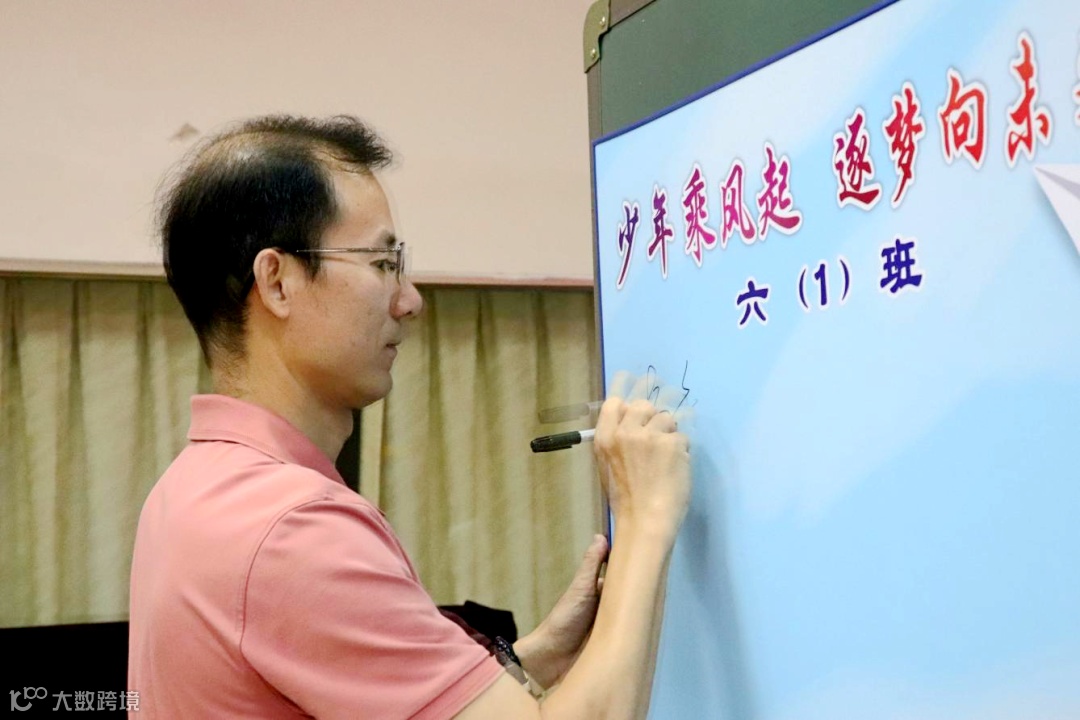 少年乘风起 逐梦向未
六（1）班
大数跨境